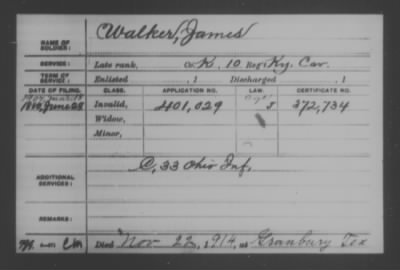 NAME OF SOLDIER: Walker, James
SERVICE: Late rank, Co. K, 10 Reg't Ky. Cav.
TERM OF SERVICE: Enlisted , 1 Discharged , 1
DATE OF FILING. CLASS. APPLICATION NO. LAW. CERTIFICATE NO.
1880, June 28 Invalid, 401,029 J 372,734
Widow,
Minor,
ADDITIONAL SERVICES: C, 33 Ohio Inf.
REMARKS:
Died Nov 22, 1914, at Granbury Tex